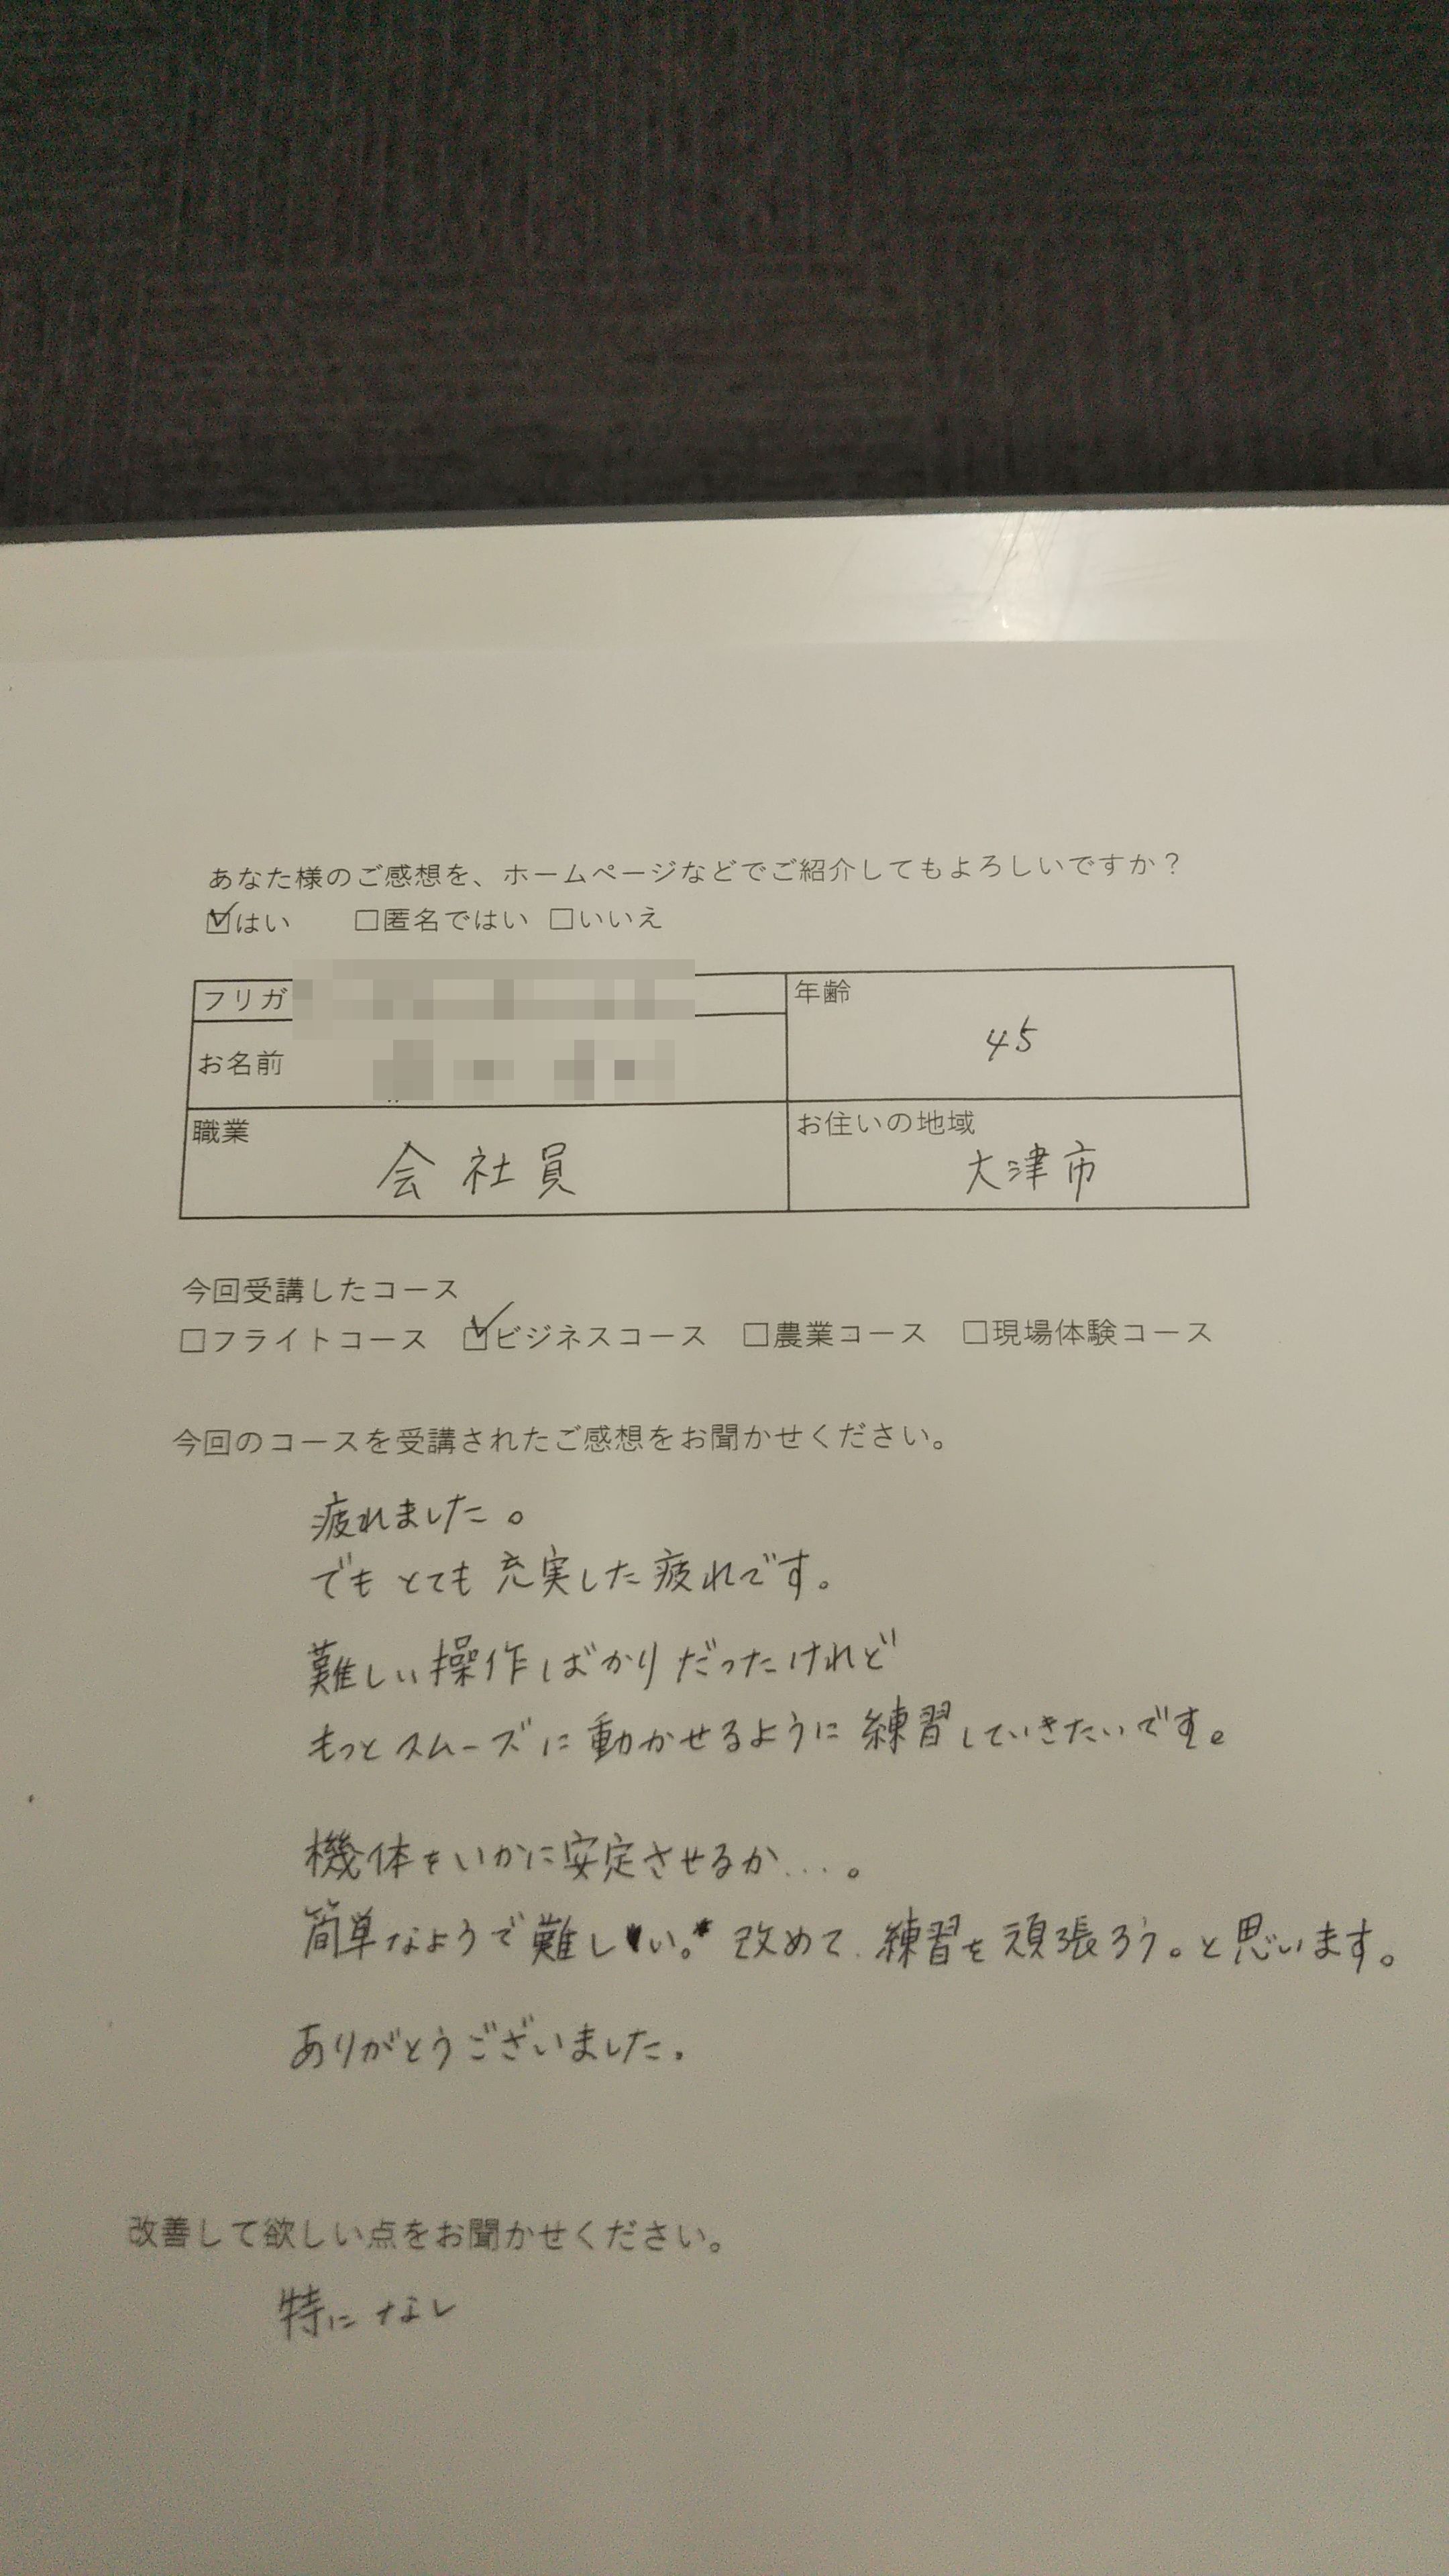 あなた様のご感想を、ホームページなどでご紹介してもよろしいですか？
☑はい　□匿名ではい　□いいえ
フリガ
年齢
45
お名前
職業
会社員
お住いの地域
大津市
今回受講したコース
□フライトコース　☑ビジネスコース　□農業コース　□現場体験コース
今回のコースを受講されたご感想をお聞かせください。
疲れました。
でもとても充実した疲れです。
難しい操作ばかりだったけれど
もっとスムーズに動かせるように練習していきたいです。
機体をいかに安定させるか…。
簡単なようで難しい。改めて練習を頑張ろう。と思います。
ありがとうございました.
改善して欲しい点をお聞かせください。
特になし